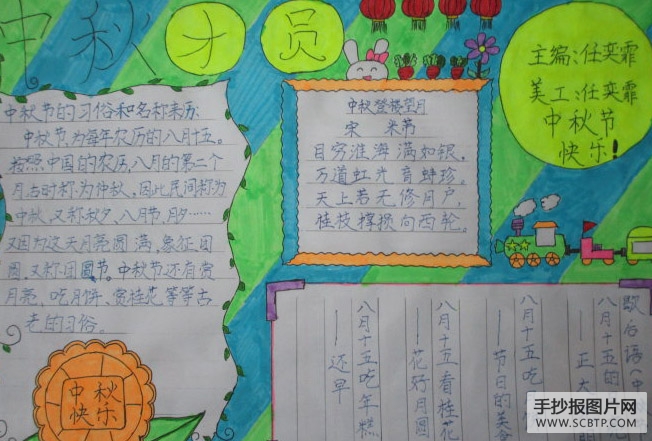 中秋团圆
中秋节的习俗和名称来历:
中秋节,为每年农历的八月十五。
按照中国的农历,八月的第二个
月古时称为仲秋,因此民间称为
中秋,又称秋夕、八月节,月夕……
又因为这天月亮圆满,象征团
圆,又称团圆节。中秋节还有赏
月亮、吃月饼、赏桂花等等古
老的习俗。
中秋快乐
中秋登楼望月
宋 米节
目穷淮海满如银,
万道虹光育蚌珍。
天上若无修月户,
桂枝撑损向西轮。
主编:任奕霏
美工:任奕霏
中秋节
快乐!
歇后语(中
八月十五的
——正大
八月十五吃
——节日的美
八月十五看桂花
——花好月圆
八月十五吃年糕
——还早
手抄报图片网
WWW.SCBTP.COM